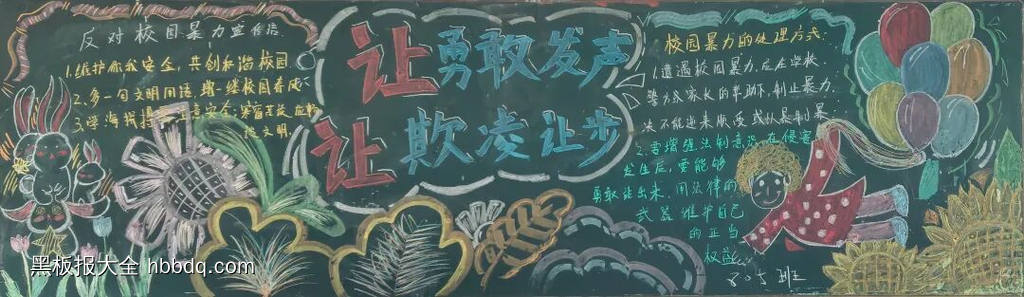 反对校园暴力宣传语
1.维护你我安全,共创和谐校园
2.多一句文明用语,增一继校园春风
3.学海
文明
让勇敢发声
让欺凌让步
校园暴力的处理方式:
1.遭遇校园暴力,应在学校
警方及家长的帮助下,制止暴力
决不能逆来顺受或以暴制暴
2.要增强法制意识,在侵害
发生后,要能够
勇敢让出来,用法律的
武器维护自己
的正当
权益
班
黑板报大全 hbbdq.com